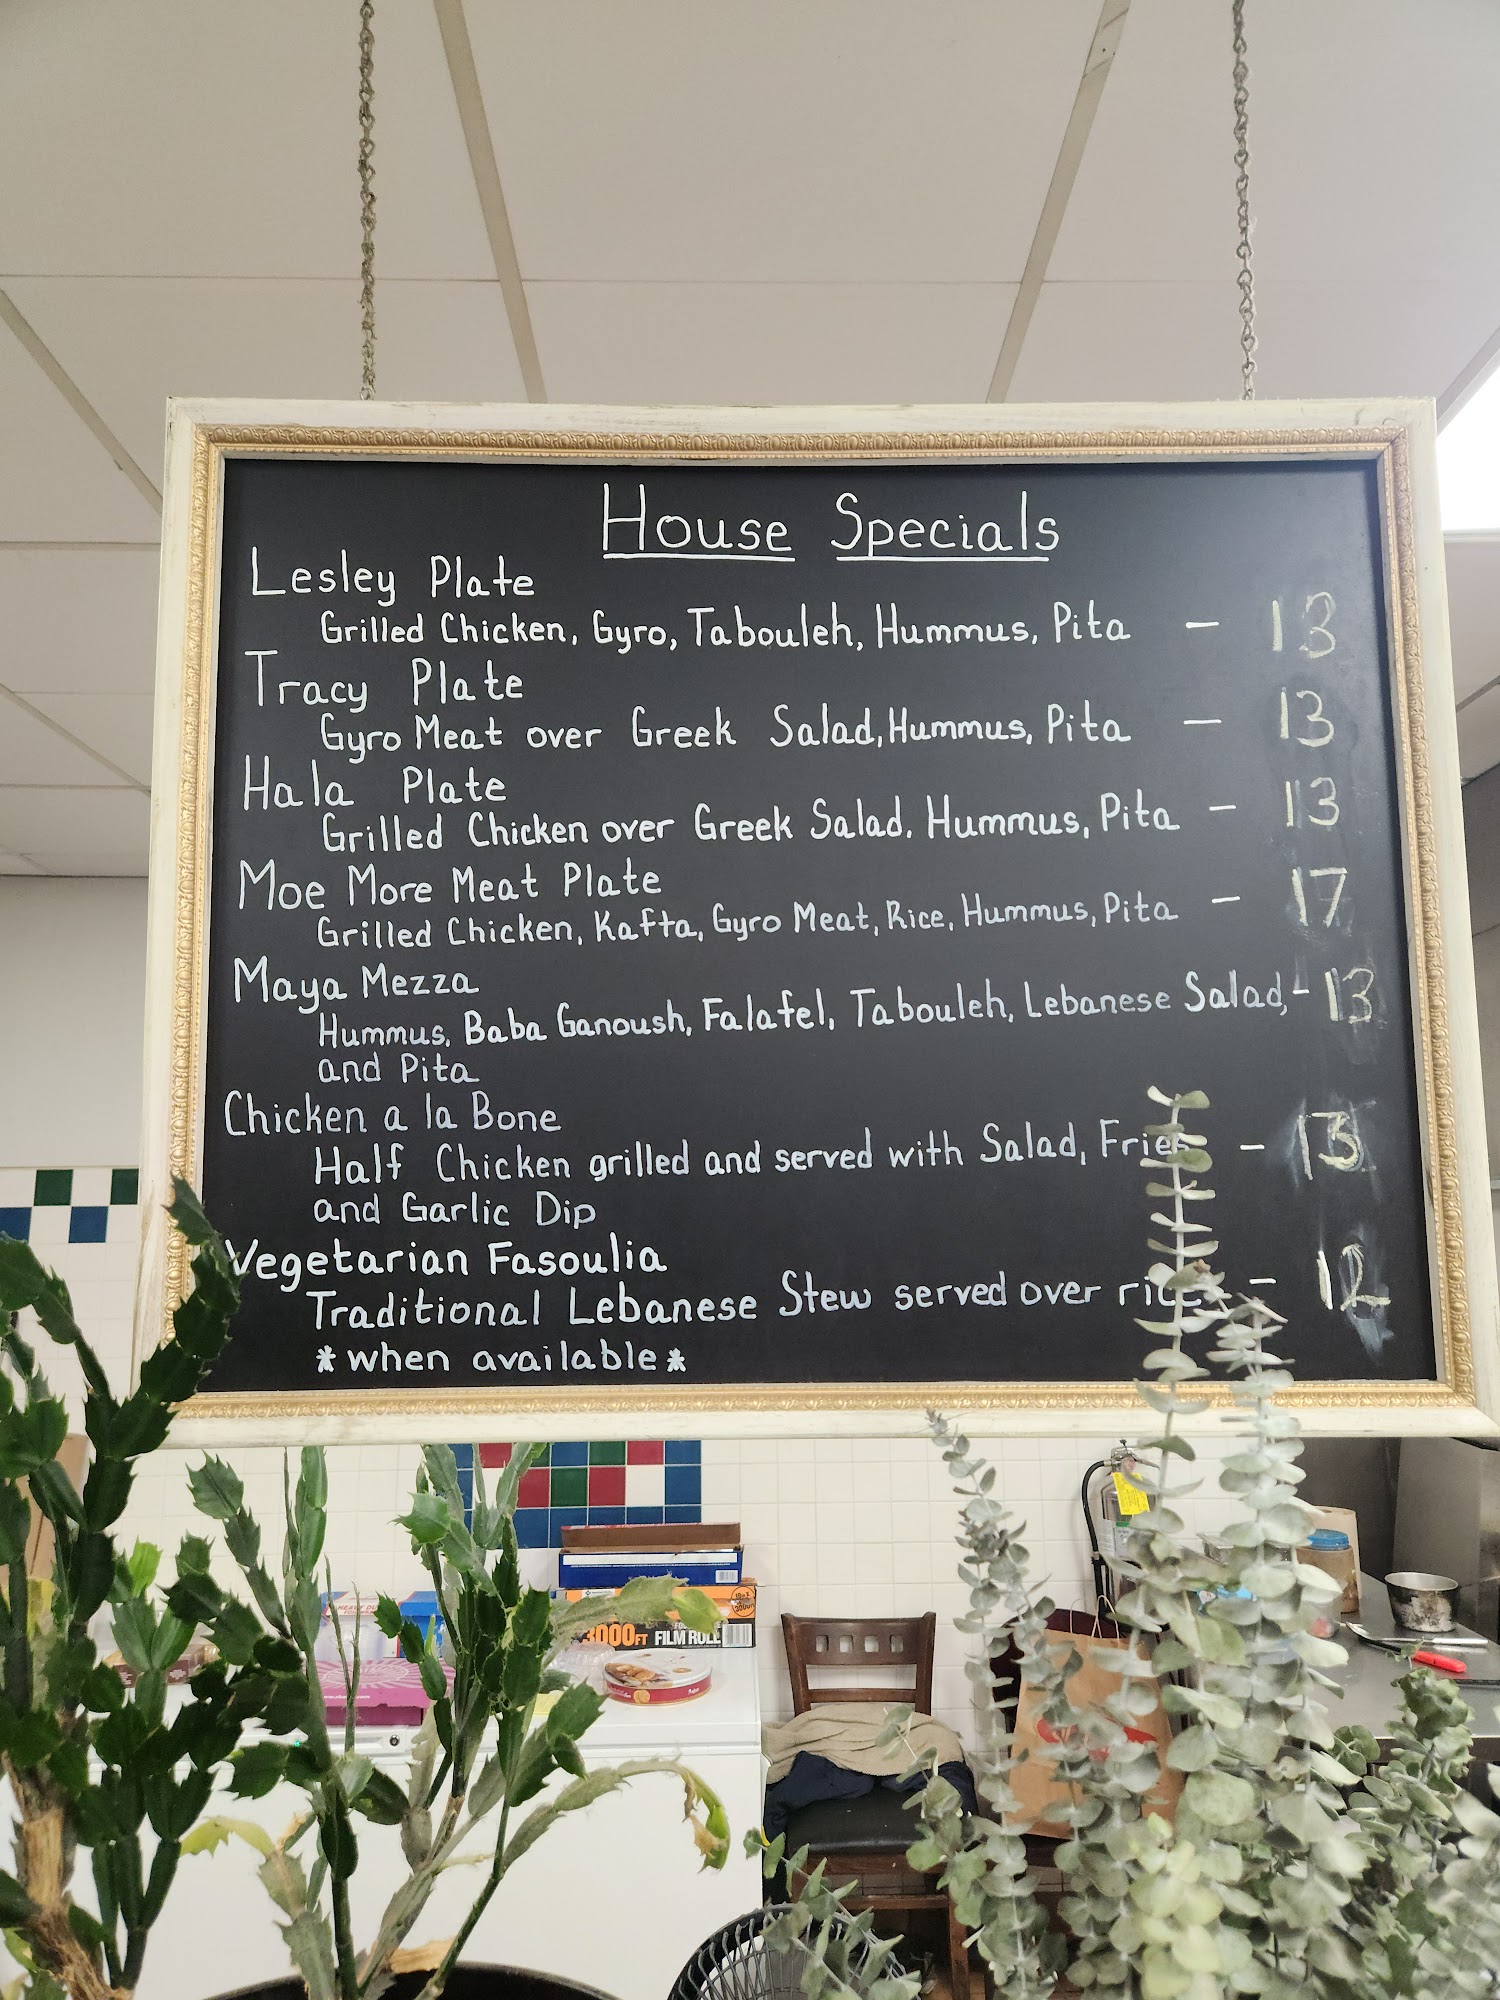 House Specials
Lesley Plate
Grilled Chicken, Gyro, Tabouleh, Hummus, Pita - 13
Tracy Plate
Gyro Meat over Greek Salad, Hummus, Pita - 13
Hala Plate
Grilled Chicken over Greek Salad. Hummus, Pita - 13
Moe More Meat Plate
Grilled Chicken, Kafta, Gyro Meat, Rice, Hummus, Pita - 17
Maya Mezza
Hummus, Baba Ganoush, Falafel, Tabouleh, Lebanese Salad, - 13
and Pita
Chicken a la Bone
Half Chicken grilled and served with Salad, Fries -
and Garlic Dip
Vegetarian Fasoulia
Traditional Lebanese Stew served over rice - 12
*when available*
3000FT FILM ROLL